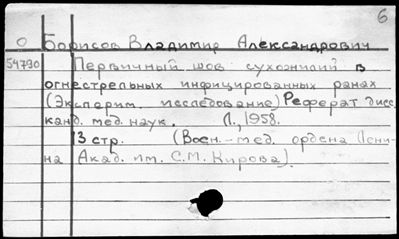 6
О Борисов Владимир Александрович
54790 Первичный шов сухожилий в
огнестрельных инфицированных ранах
(Эксперим. исследование) Реферат дисс.
канд. мед. наук. Л., 1958.
13 стр. (Воен.-мед. ордена Лени-
на Акад. им. С.М. Кирова).